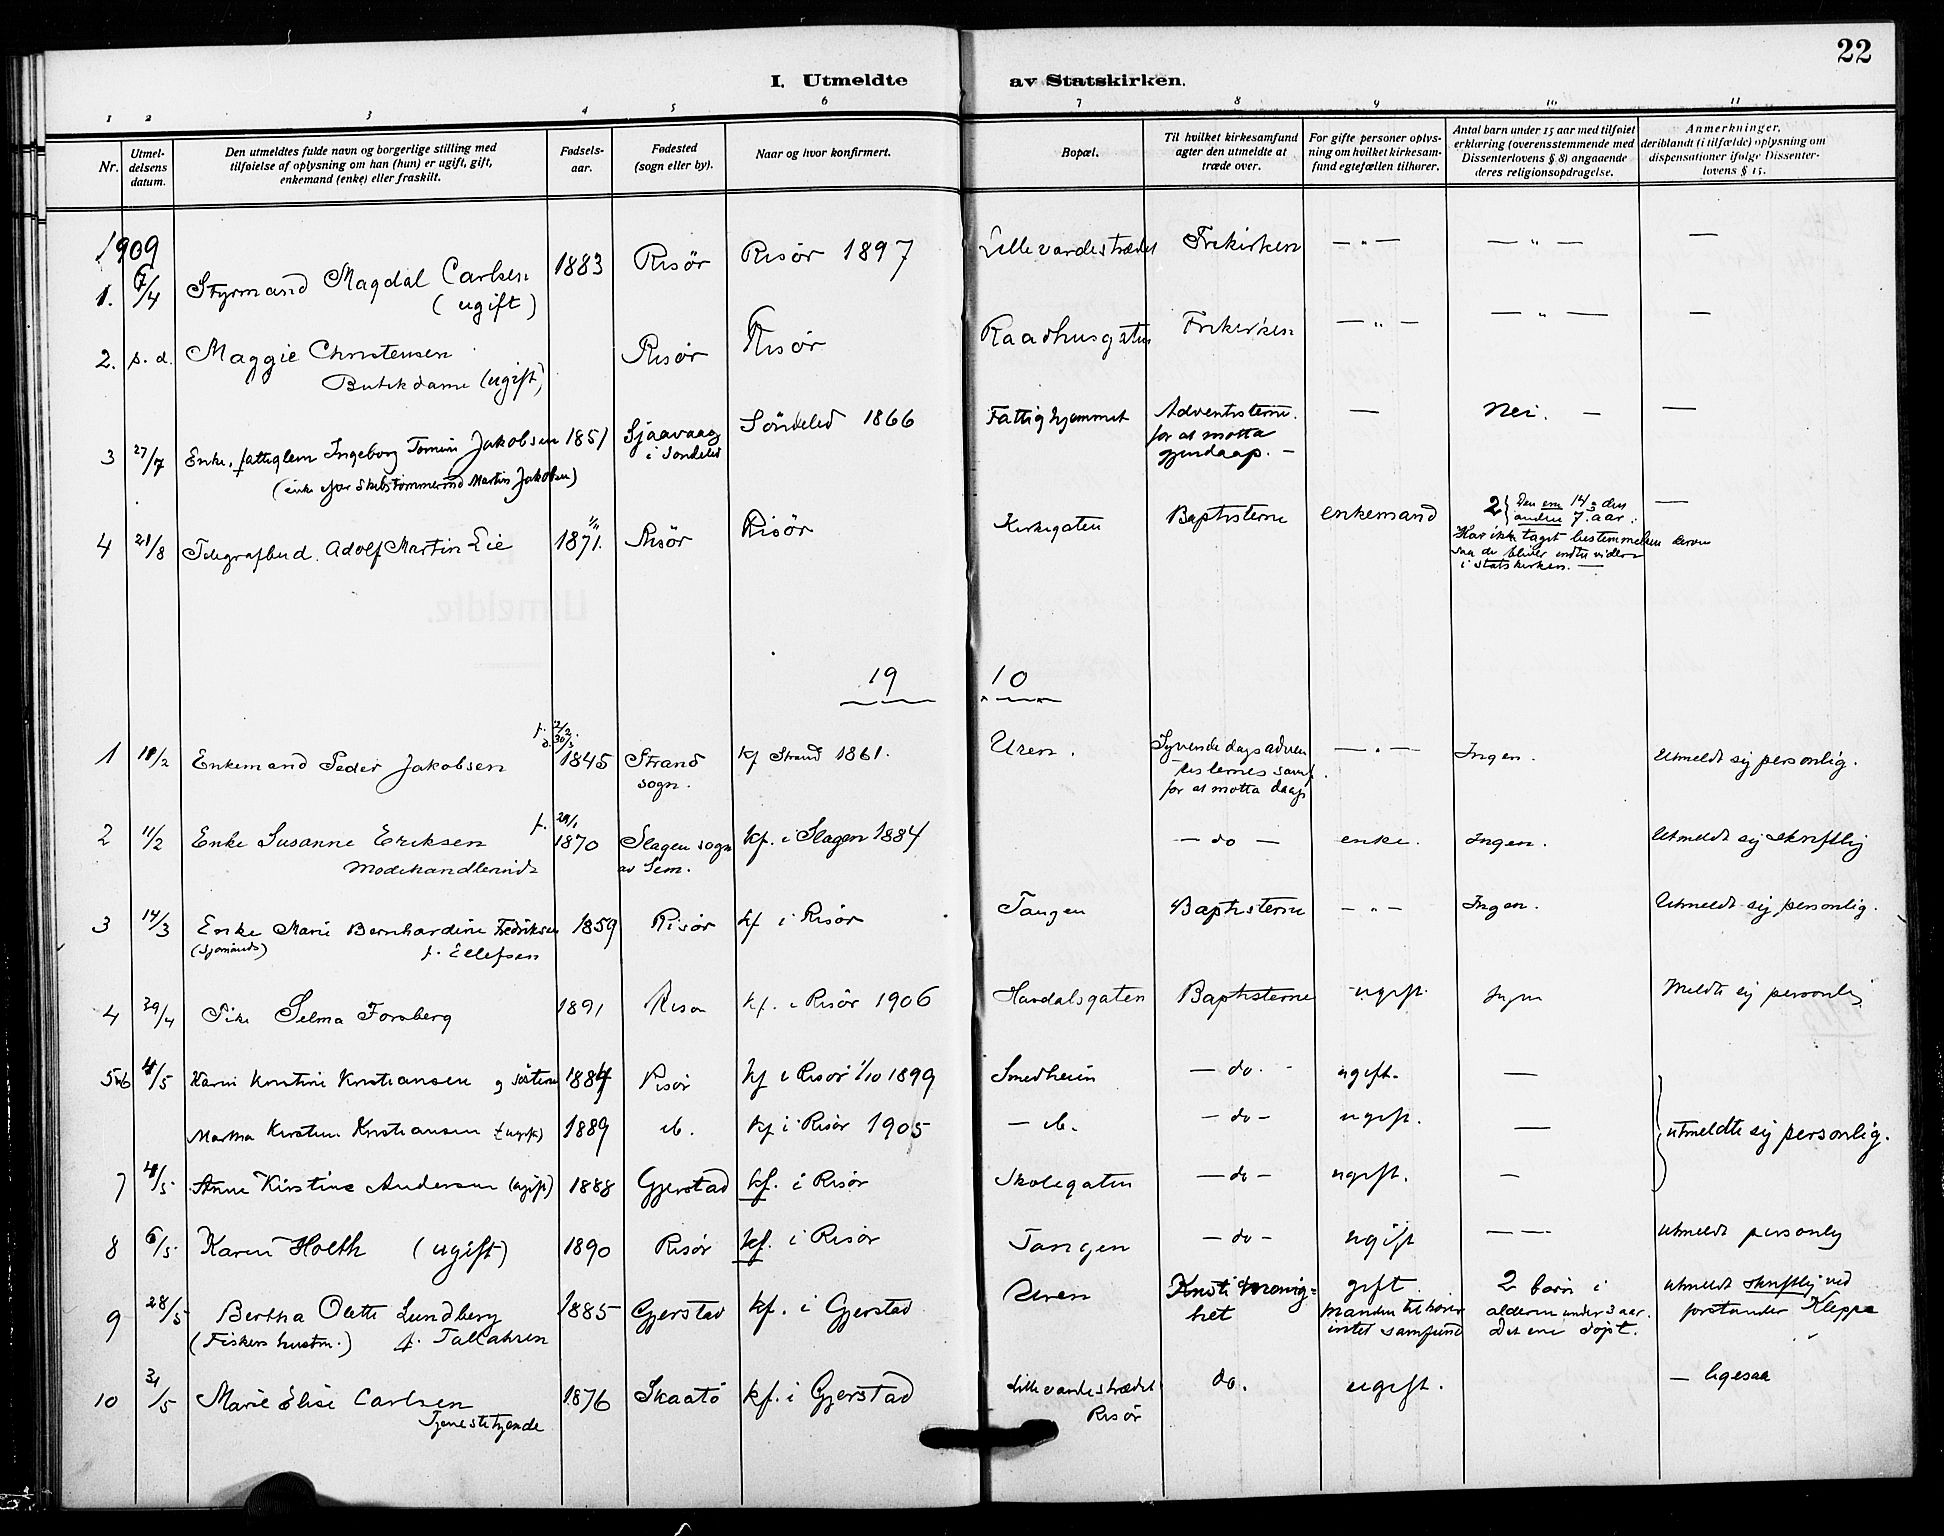 22
I. Utmeldte av Statskirken.
1 2 3 4 5 6 7 8 9 10 11
Nr.
Utmel-
delsens
datum.
Den utmeldtes fulde navn og borgerlige stilling med
tilføielse af oplysning om han (hun) er ugift, gift,
enkemand (enke) eller fraskilt.
Fødsels-
aar.
Fødested
(sogn eller by).
Naar og hvor konfirmert.
Bopæl.
Til hvilket kirkesamfund
agter den utmeldte at
træde over.
For gifte personer oplys-
ning om hvilket kirkesam-
fund egtefællen tilhører.
Antal barn under 15 aar med tilføiet
erklæring (overensstemmende med
Dissenterlovens § 8) angaaende
deres religionsopdragelse.
Anmerkninger,
deriblandt (i tilfælde) oplysning om
dispensationer ifølge Dissenter-
lovens § 15.
1909
1. 7/4 Styrmand Magdal Carlsen 1883 Risör Risör 1897 Lille vardestrædet Frikirken — „ — — „ — —
(ugift)
2. s. d. Maggie Christensen Risör Risör Raadhusgaten Frikirken — „ — — „ — —
Butikdame (ugift)
3 27/7 Enke, fattiglem Ingeborg Tomine Jakobsen 1851 Sjaavaag Söndeled 1866 Fattighjemmet Adventisterne. — Nei. — —
i Söndeled for at motta
gjendaap. —
(enke efter Skibstömmermd Martin Jakobsen)
4 21/8 Telegrafbud. Adolf Martin Lie 1871. Risör Risör Kirkegaten Baptisterne enkemand 2 { Den ene 14 3 den —
andre 7. aar.
Har ikke taget bestemmelsen derom
saa de bliver endnu videre
i statskirken. —
19 10
1 11/2 Enkemand Peder Jakobsen f. 2/2. d. 30/3 1845 Strand kf Strand 1861. Uren. Syvende dags adven — „ — Ingen. Utmeldt sig personlig.
sogn. tisternes samf.
for at motta daap
2 11/2 Enke Susanne Eriksen f. 1870 Slagen sogn kf. i Slagen 1884 — do — enke. Ingen. Utmeldt sig skriftlig
Modehandlerinde av Sem.
3 14/3 Enke Marie Bernhardine Fedriksen 1859 Risör kf i Risör Tangen Baptisterne — „ — Ingen. Utmeldt sig personlig.
(Sjömands) f. Ellefsen
4 29/4 Pike Selma Forsberg 1891 Risör kf. i Risör 1906 Havdalsgaten Baptisterne ugift Ingen Meldte sig personlig
5 & 6 4/5 Karen Kristine Kristiansen og söstern 1884 Risör kf i Risör 1/10 1899 Smedheim — do. - ugift. —
Martha Kirstine Kristiansen (ugift) 1889 do. kf i Risör 1905 — do. — do — ugift. — utmeldte sig personlig.
7 4/5 Anne Kirstine Andersen (ugift) 1888 Gjerstad kf. i Risör Skolegaten — do — ugift. —
8 6/5 Karen Holth (ugift) 1890 Risör kf. i Risör Tangen — do — ugift — — utmeldt personlig
9 28/5 Bertha Olette Lundberg 1885 Gjerstad kf. i Gjerstad Uren gift 2 barn i utmeldt skriftlig ved
(Fiskers hustru.) f. het manden tilhører alderen under 3 aar. forstander Kleppe
intet samfund det ene döpt.
10 31/5 Marie Elise Carlsen 1876 Skaatö kf. i Gjerstad Lille vardestrædet do. ugift. — ligesaa
Tjenestetjende Risör